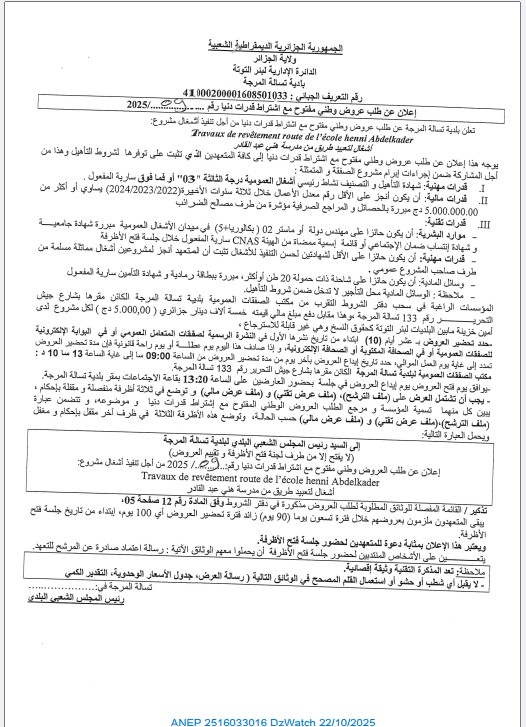 الجمهورية الجزائرية الديمقراطية الشعبية
ولاية الجزائر
الدائرة الإدارية لبئر التوتة
بلدية تسالة المرجة
رقم التعريف الجبائي : 41000200001608501033
إعلان عن طلب عروض وطني مفتوح مع اشتراط قدرات دنيا رقم ...09.../2025
تعلن بلدية تسالة المرجة عن طلب عروض وطني مفتوح مع اشتراط قدرات دنيا من أجل تنفيذ أشغال مشروع:
Travaux de revêtement route de l'école henni Abdelkader
أشغال لتعبيد طريق من مدرسة هني عبد القادر
يوجه هذا إعلان عن طلب عروض وطني مفتوح مع اشتراط قدرات دنيا إلى كافة المتعهدين الذي تثبت على توفرها لشروط التأهيل وهذا من
أجل المشاركة ضمن إجراءات إبرام مشروع الصفقة و المتمثلة :
I. قدرات مهنية: شهادة التأهيل و التصنيف نشاط رئيسي أشغال العمومية درجة الثالثة "03" أو فما فوق سارية المفعول .
II. قدرات مالية: أن يكون أنجز على الأقل رقم معدل الأعمال خلال ثلاثة سنوات الأخيرة(2024/2023/2022) يساوي أو أكثر من
5.000.000.00 دج مبررة بالحصائل و المراجع الصرفية مؤشرة من طرف مصالح الضرائب
III. قدرات تقنية:
- موارد البشرية: أن يكون حائزا على مهندس دولة أو ماستر 02 (بكالوريا+5) في ميدان الأشغال العمومية مبررة شهادة جامعية
و شهادة إنتساب ضمان الإجتماعي أو قائمة إسمية ممضاة من الهيئة CNAS سارية المفعول خلال جلسة فتح الأظرفة
- قدرات مهنية: أن يكون حائزا على الأقل لشهادتين لحسن التنفيذ للأشغال تثبت أن المتعهد أنجز لمشروعين أشغال مماثلة مسلمة من
طرف صاحب المشروع عمومي .
- وسائل المادية: أن يكون حائزا على شاحنة ذات حمولة 20 طن أوأكثر، مبررة ببطاقة رمادية و شهادة التأمين سارية المفعول
- ملاحظة : الوسائل المادية محل التأجير لا تدخل ضمن شروط التأهيل.
المؤسسات الراغبة في سحب دفتر الشروط التقرب من مكتب الصفقات العمومية بلدية تسالة المرجة الكائن مقرها بشارع جيش
التحرير رقم 133 تسالة المرجة ،وهذا مقابل دفع مبلغ مالي قيمته خمسة ألاف دينار جزائري (5.000,00 دج) لكل مشروع لدى
أمين خزينة مابين البلديات لبئر التوتة كحقوق النسخ وهي غير قابلة للاسترجاع ،
-حدد تحضير العروض بـ عشر أيام (10) ابتداء من تاريخ نشرها الأول في النشرة الرسمية لصفقات المتعامل العمومي أو في البوابة الإلكترونية
للصفقات العمومية أو في الصحافة المكتوبة أو الصحافة الإلكترونية، و إذا صادف هذا اليوم يوم عطلة أو يوم راحة قانونية فإن مدة تحضير العروض
تمدد إلى غاية يوم العمل الموالي، حدد تاريخ إيداع العروض بآخر يوم من مدة تحضير العروض من الساعة 09:00 سا إلى غاية الساعة 13 سا و10 د :
مكتب الصفقات العمومية لبلدية تسالة المرجة الكائن مقرها بشارع جيش التحرير رقم 133 تسالة المرجة.
-يوافق يوم فتح العروض يوم إيداع العروض في جلسة بحضور العارضين على الساعة 13:20 بقاعة الاجتماعات بمقر بلدية تسالة المرجة.
- يجب أن تشتمل العرض على (ملف الترشح)، (ملف عرض تقني) و (ملف عرض مالي) و توضع في ثلاثة أظرفة منفصلة و مقفلة بإحكام ،
يبين كل منهما تسمية المؤسسة و مرجع الطلب العروض الوطني المفتوح مع إشتراط قدرات دنيا و موضوعه، و تتضمن عبارة
(ملف الترشح)،(ملف عرض تقني) و(ملف عرض مالي) حسب الحالة، وتوضع هذه الأظرفة الثلاثة في ظرف آخر مقفل بإحكام و مغفل
ويحمل العبارة التالية:
إلى السيد رئيس المجلس الشعبي البلدي لبلدية تسالة المرجة
(لا يفتح إلا من طرف لجنة فتح الأظرفة و تقييم العروض)
إعلان عن طلب العروض وطني مفتوح مع اشتراط قدرات دنيا رقم:...09.../ 2025 من أجل تنفيذ أشغال مشروع:
Travaux de revêtement route de l'école henni Abdelkader
أشغال لتعبيد طريق من مدرسة هني عبد القادر
تذكير / القائمة المفصلة للوثائق المطلوبة لطلب العروض مذكورة في دفتر الشروط وفق المادة رقم 12 صفحة 05،
يبقى المتعهدون ملزمون بعروضهم خلال فترة تسعون يوما (90 يوم) زائد فترة تحضير العروض أي 100 يوم، إبتداء من تاريخ جلسة فتح
الأظرفة.
ويعتبر هذا الإعلان بمثابة دعوة للمتعهدين لحضور جلسة فتح الأظرفة.
يتعين على الأشخاص المنتدبين لحضور جلسة فتح الأظرفة أن يحملوا معهم الوثائق الآتية : رسالة اعتماد صادرة عن المرشح للتعهد.
ملاحظة: تعد المذكرة التقنية وثيقة إقصائية.
- لا يقبل أي شطب أو حشو أو استعمال القلم المصحح في الوثائق التالية ( رسالة العرض، جدول الأسعار الوحدوية، التقدير الكمي
تسالة المرجة في:....................
رئيس المجلس الشعبي البلدي
ANEP 2516033016 DzWatch 22/10/2025